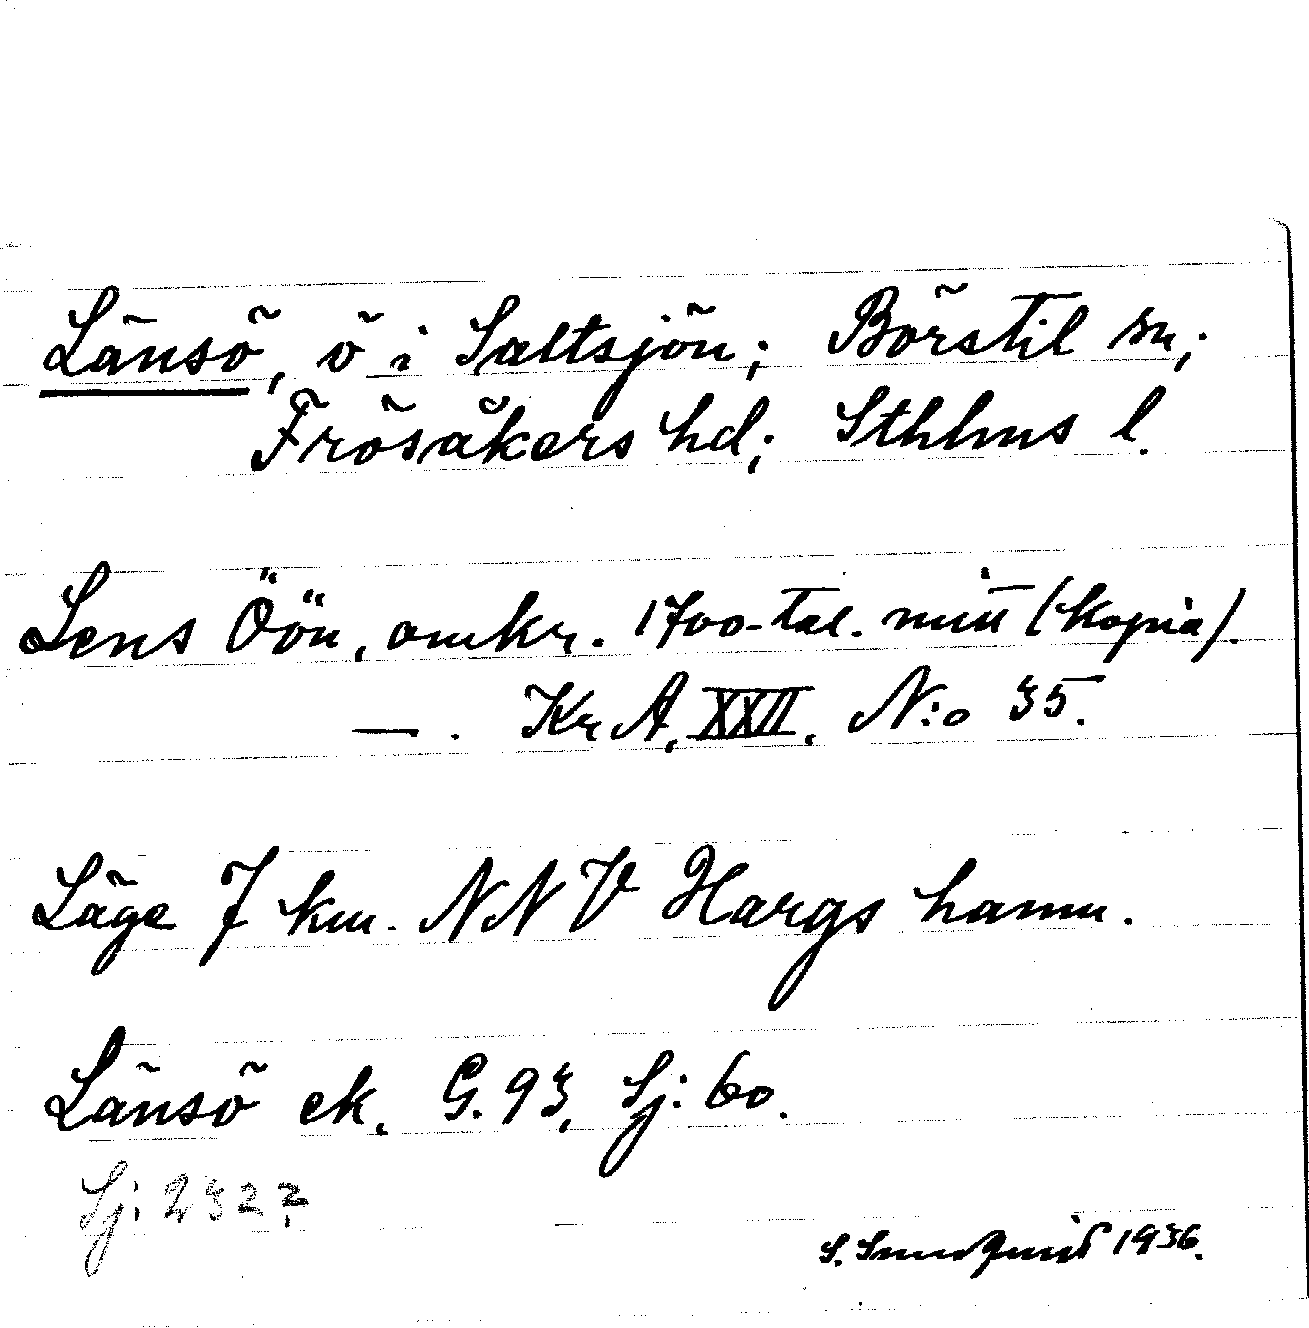 Länsö, ö i Saltsjön; Börstil sn;
Frösåkers hd; Sthlms l.
Lens Öön, omkr. 1700-tal. mitt (kopia).
— . Kr A, XXII, N:o 35.
Läge 7 km. NNV Hargs hamn.
Länsö ek. G. 93, Sj: 60.
Sj: 2322
S. Sundquist 1936.